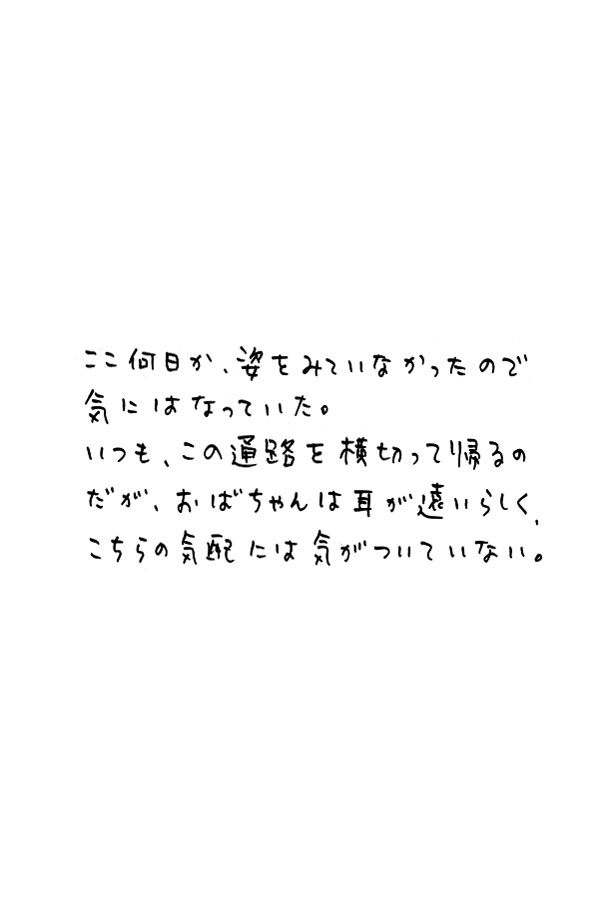 ここ何日か、姿をみていなかったので
気にはなっていた。
いつも、この通路を横切って帰るの
だが、おばちゃんは耳が遠いらしく、
こちらの気配には気がついていない。